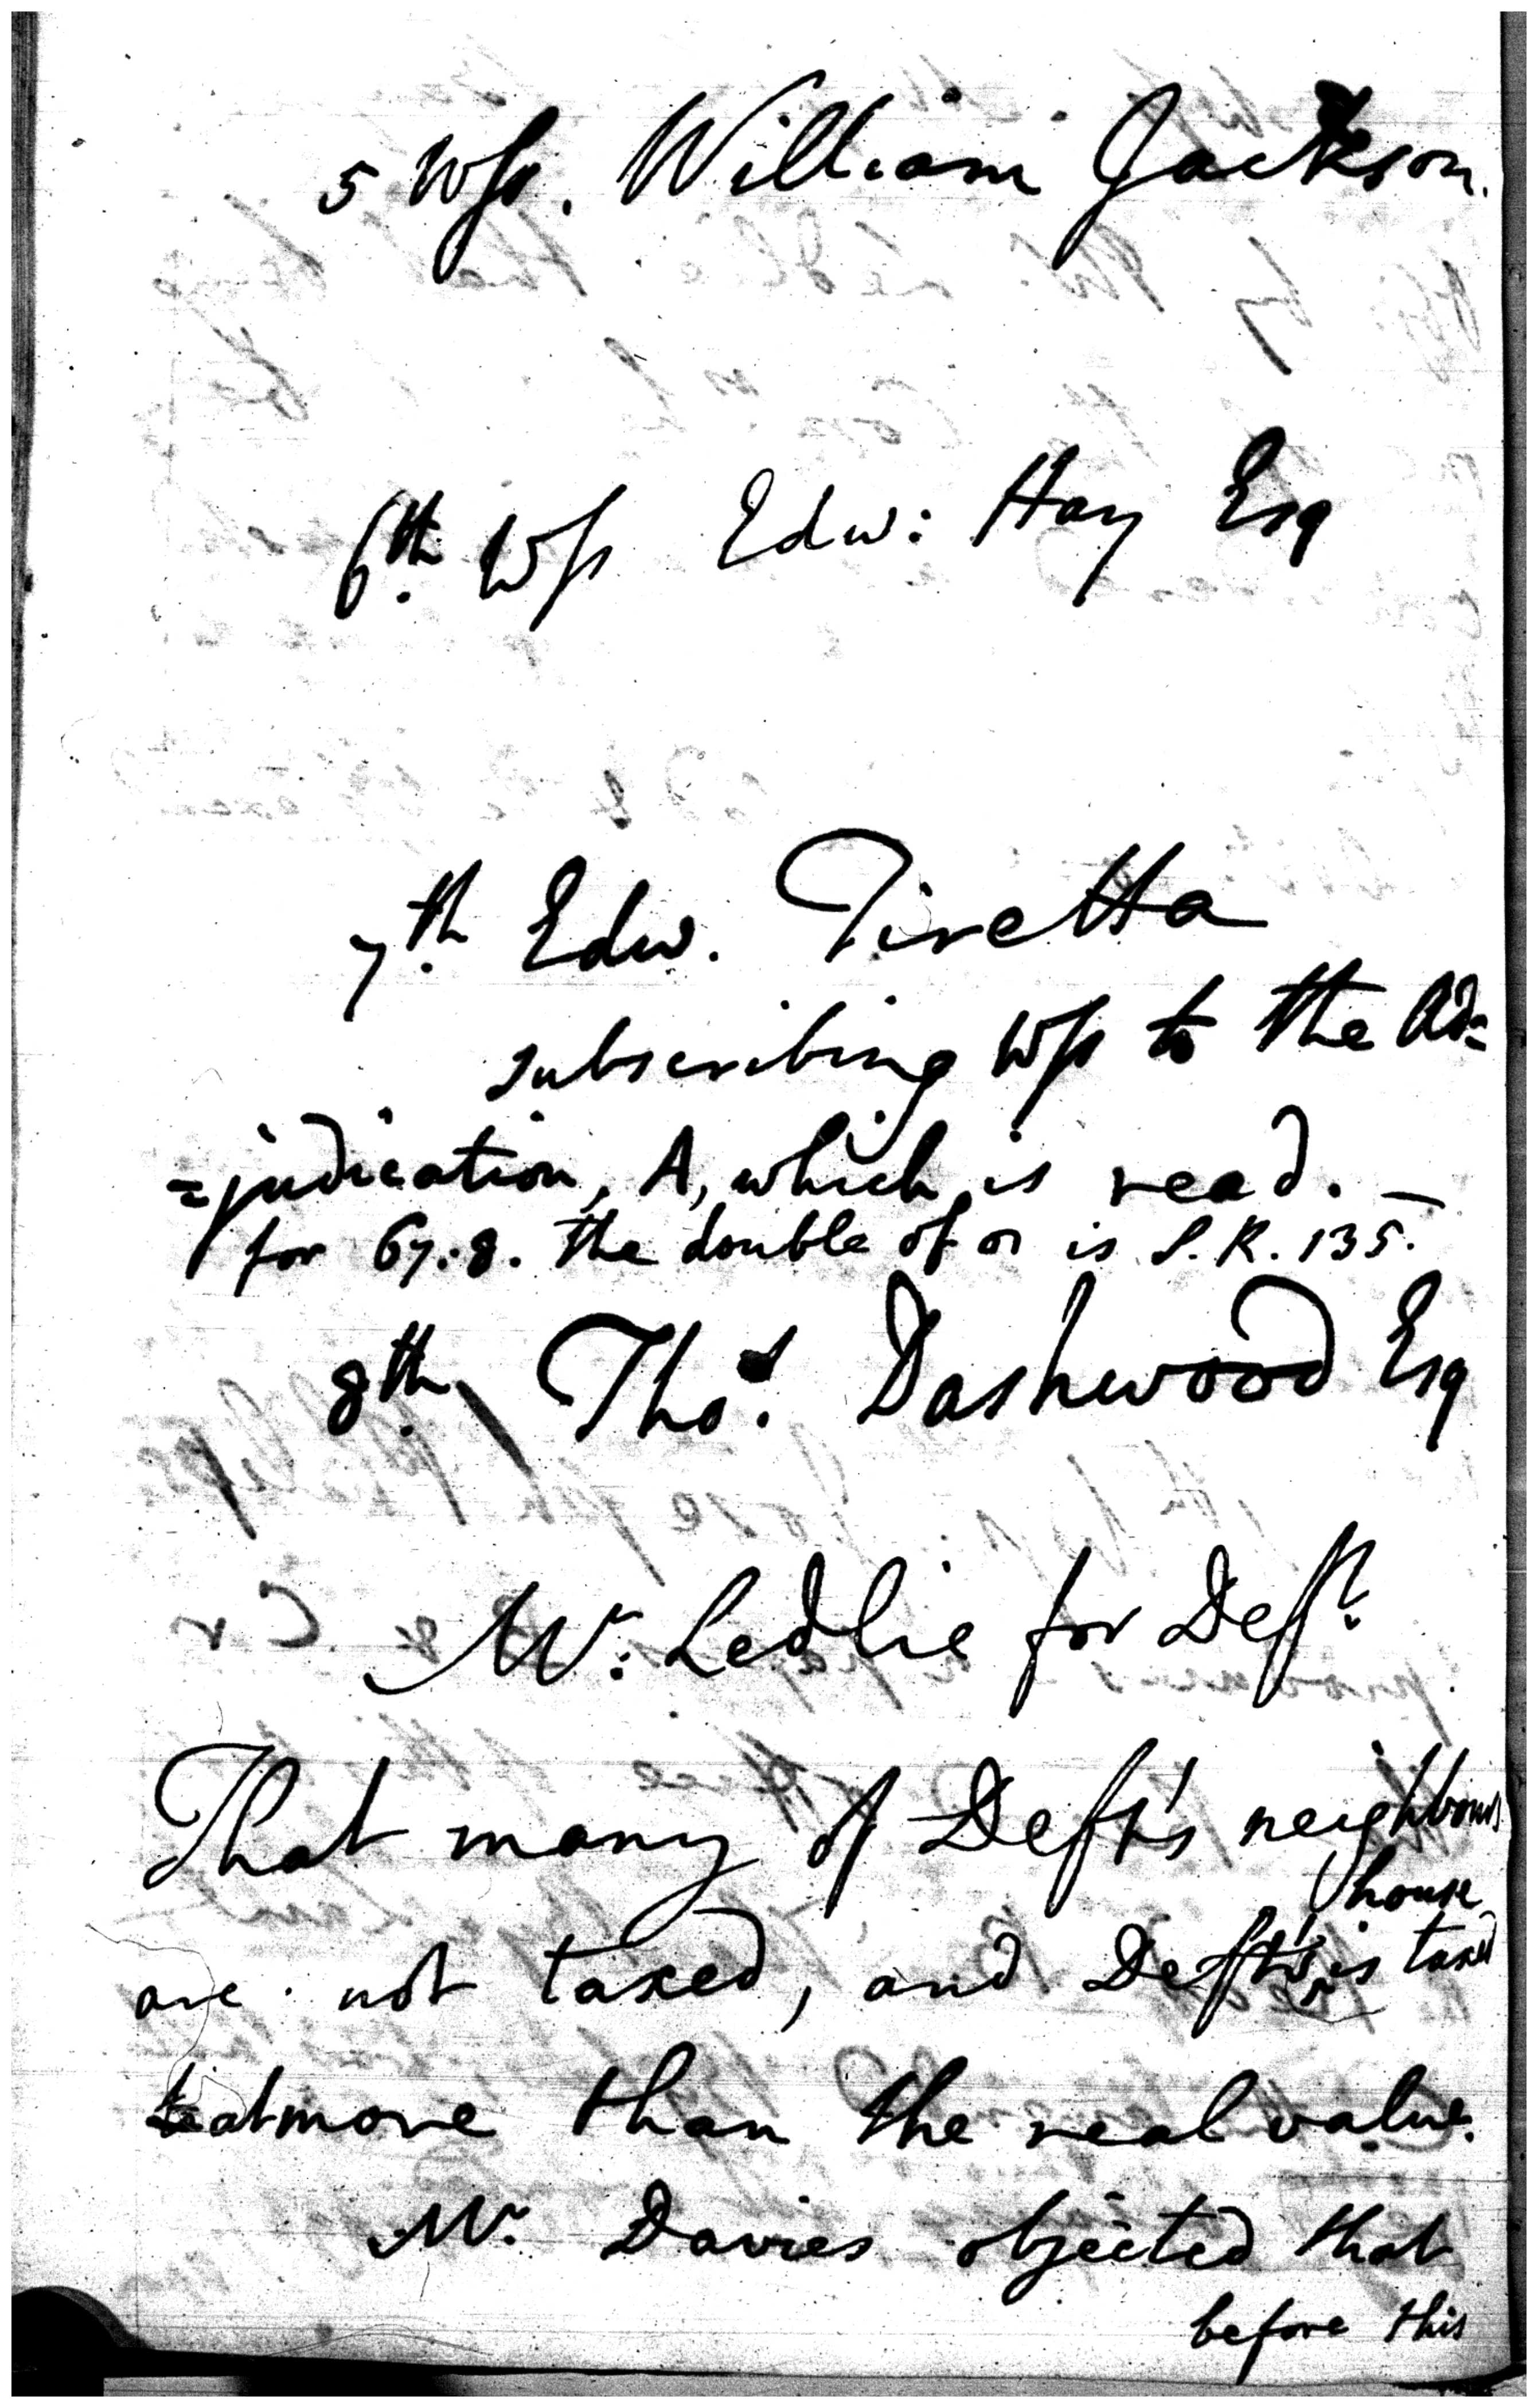 5 Wss. William Jackson.
6th. Wss Edw: Hay Esq
7th. Edw. Tiretta
subscribing Wss to the Ad=
=judication, A, which is read. —
for 67:8. the double of is S.R. 135.
8th. Thos. Dashwood Esq
Mr. Ledlie for Deft.
That many of Deft's neighbours
house
are not taxed, and Deft's is taxed
at more than the real value.
Mr. Davies objected that
before this